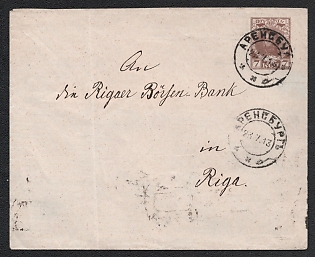 АРЕНСБУРГЪ
7 7
An
die Rigaer Börsen-Bank
АРЕНСБУРГЪ
23.V.13
in
Riga.